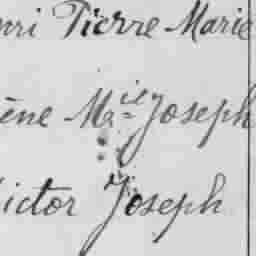 nri Pierre Marie
ène M^ie Joseph
ictor Joseph